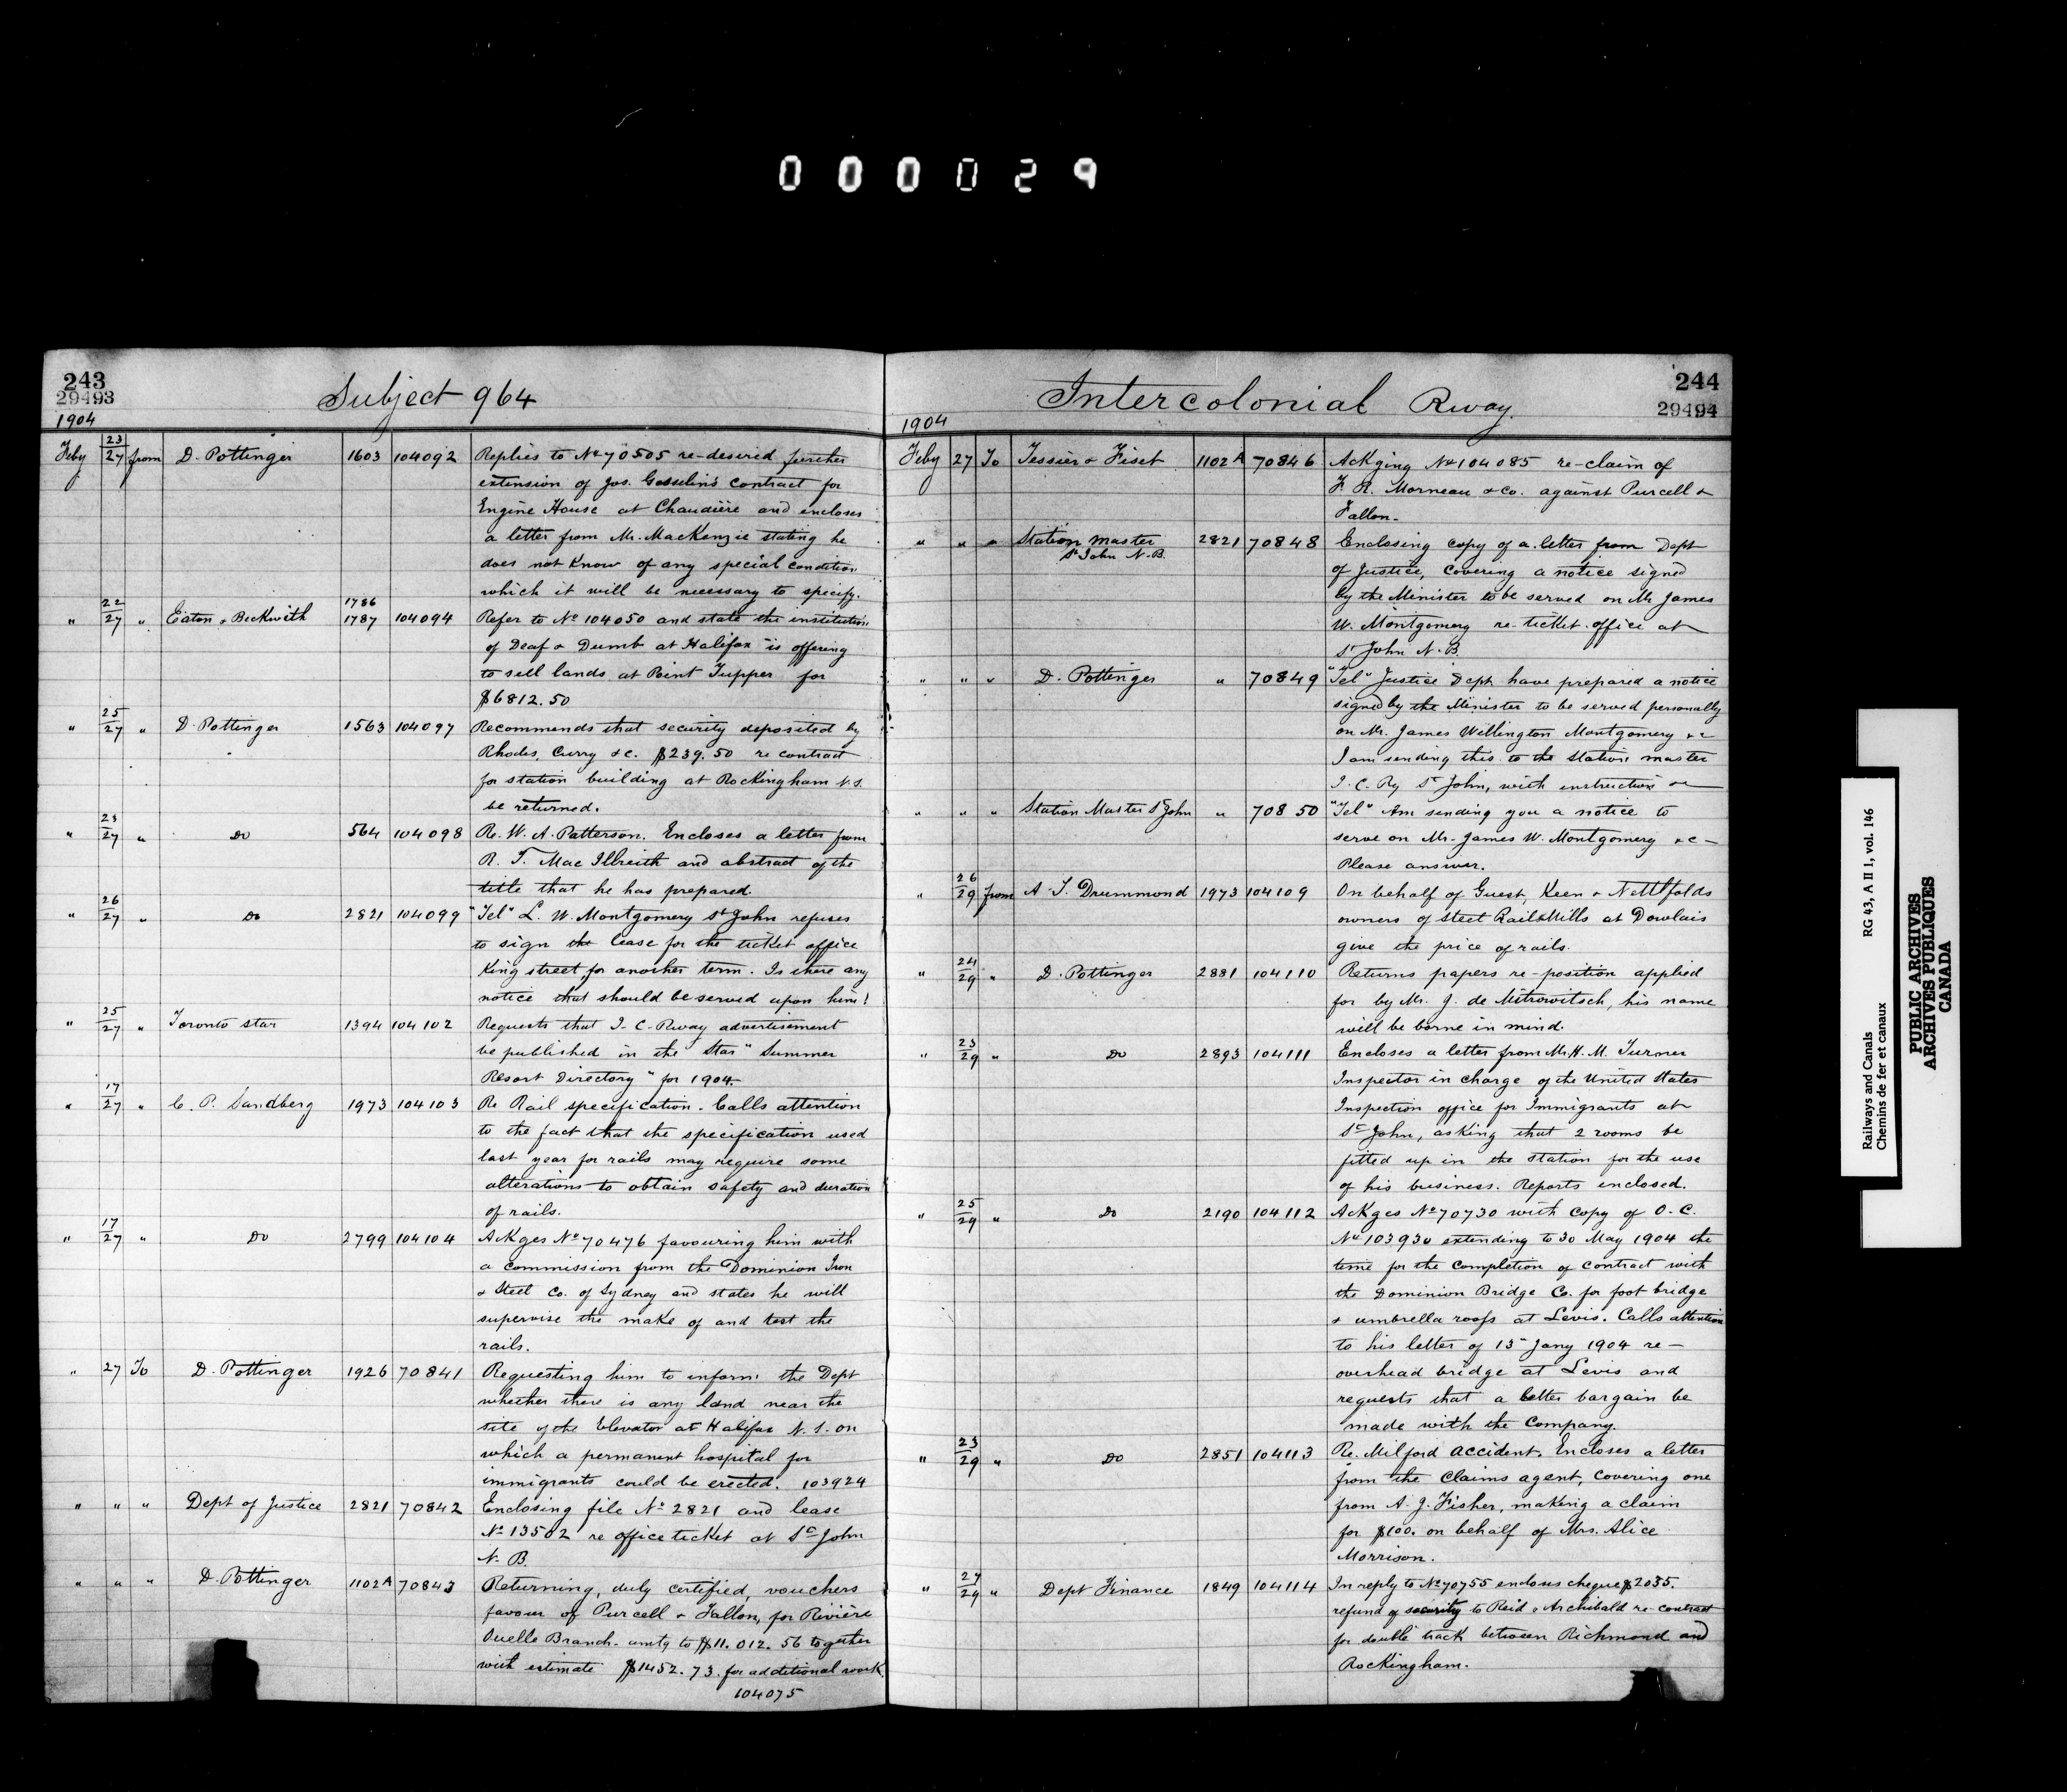 0 0 0 0 2 9
243
29493
Subject 964
1904
Feby 23/27 from D. Pottinger 1603 104092 Replies to No 70505 re-desired further
extension of Jos. Gosselin's contract for
Engine House at Chaudière and encloses
a letter from Mr. MacKenzie stating he
does not know of any special condition
which it will be necessary to specify.
" 22/27 " Eaton & Beckwith 1786 1787 104094 Refer to No 104050 and state the institution
of Deaf & Dumb at Halifax is offering
to sell lands at Point Tupper for
$6812.50
" 25/27 " D. Pottinger 1563 104097 Recommends that security deposited by
Rhodes, Curry &c. $239.50 re contract
for station building at Rockingham N.S.
be returned.
" 23/27 " Do 564 104098 Re. W. A. Patterson. Encloses a letter from
R. T. Mac Ilreith and abstract of the
title that he has prepared.
" 26/27 " Do 2821 104099 "Tel" L. W. Montgomery St John refuses
to sign the lease for the ticket office
King street, for another term. Is there any
notice that should be served upon him!
" 25/27 " Toronto Star 1394 104102 Requests that I-C-Rway advertisement
be published in the "Star" Summer
Resort Directory" for 1904.
" 17/27 " C. P. Sandberg 1973 104103 Re Rail specification. Calls attention
to the fact that the specification used
last year for rails may require some
alterations to obtain safety and duration
of rails.
" 17/27 " Do 2799 104104 Ackges No 70476 favouring him with
a commission from the Dominion Iron
& Steel Co. of Sydney and states he will
supervise the make of and test the
rails.
" 27 To D. Pottinger 1926 70841 Requesting him to inform the Dept
whether there is any land near the
site of the Elevator at Halifax N.S. on
which a permanent hospital for
immigrants could be erected. 103924
" " " Dept of Justice 2821 70842 Enclosing file No 2821 and lease
No 13502 re office ticket at St John
N. B.
" " " D. Pottinger 1102A 70843 Returning, duly certified, vouchers
favour of Purcell & Fallon, for Rivière
Ouelle Branch. amtg to $11.012.56 together
with estimate $1452.73. for additional work
104075
244
29494
Intercolonial Rway.
1904
Feby 27 To Tessier & Fiset 1102A 70846 Ackging No 104085 re-claim of
F. R. Morneau & Co. against Purcell &
Fallon.
" " " Station Master St John N.B. 2821 70848 Enclosing copy of a letter from Dept
of Justice, covering a notice signed
by the Minister to be served on Mr James
W. Montgomery re-ticket office at
St John N.B.
" " " D. Pottinger " 70849 "Tel" Justice Dept have prepared a notice
signed by the Minister to be served personally
on Mr. James Wellington Montgomery &c
I am sending this to the station master
I. C. Ry St John, with instruction &c
" " " Station Master St John " 70850 "Tel" Am sending you a notice to
serve on Mr. James W. Montgomery &c
Please answer.
" 26/29 from A. T. Drummond 1973 104109 On behalf of Guest, Keen & Nettlfolds
owners of Steel Rail Mills at Dowlais
give the price of rails.
" 24/29 " D. Pottinger 2881 104110 Returns papers re-position applied
for by Mr. J. de Mitrowitsch, his name
will be borne in mind.
" 23/29 " Do 2893 104111 Encloses a letter from Mr. H. M. Turner
Inspector in charge of the United States
Inspection office for Immigrants at
St John, asking that 2 rooms be
fitted up in the station for the use
of his business. Reports enclosed.
" 25/29 " Do 2190 104112 Ackges No 70730 with copy of O-C.
No 103930 extending to 30 May 1904 the
time for the completion of contract with
the Dominion Bridge Co. for foot bridge
& umbrella roofs at Levis. Calls attention
to his letter of 15 Jany 1904 re-
overhead bridge at Levis and
requests that a better bargain be
made with the Company.
" 23/29 " Do 2851 104113 Re. Milford accident. Encloses a letter
from the Claims agent, covering one
from A. J. Fisher, making a claim
for $100. on behalf of Mrs. Alice
Morrison.
" 27/29 " Dept Finance 1849 104114 In reply to No 70755 encloses cheque $2035.
refund of security to Reid & Archibald re-contract
for double track between Richmond and
Rockingham.
Railways and Canals RG 43, A II 1, vol. 146
Chemins de fer et canaux
PUBLIC ARCHIVES
ARCHIVES PUBLIQUES
CANADA